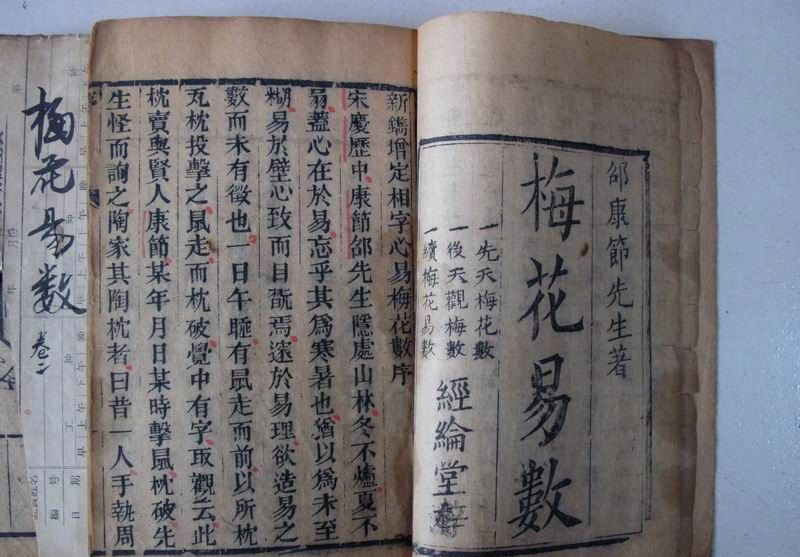 邵康節先生著
梅花易數
一先天梅花數
一後天觀梅數
一續梅花易數
經綸堂
新鐫增定相字心易梅花數序
宋慶歷中康節邵先生隱處山林冬不爐夏不
扇蓋心在於易忘乎其爲寒暑也猶以爲未至
糊易於壁心致而目翫焉邃於易理欲造易之
數而未有徵也一日午睡有鼠走而前以所枕
瓦枕投擊之鼠走而枕破覺中有字取觀云此
枕賣與賢人康節某年月日某時擊鼠枕破先
生怪而詢之陶家其陶枕者曰昔一人手執周
梅花易數
卷二